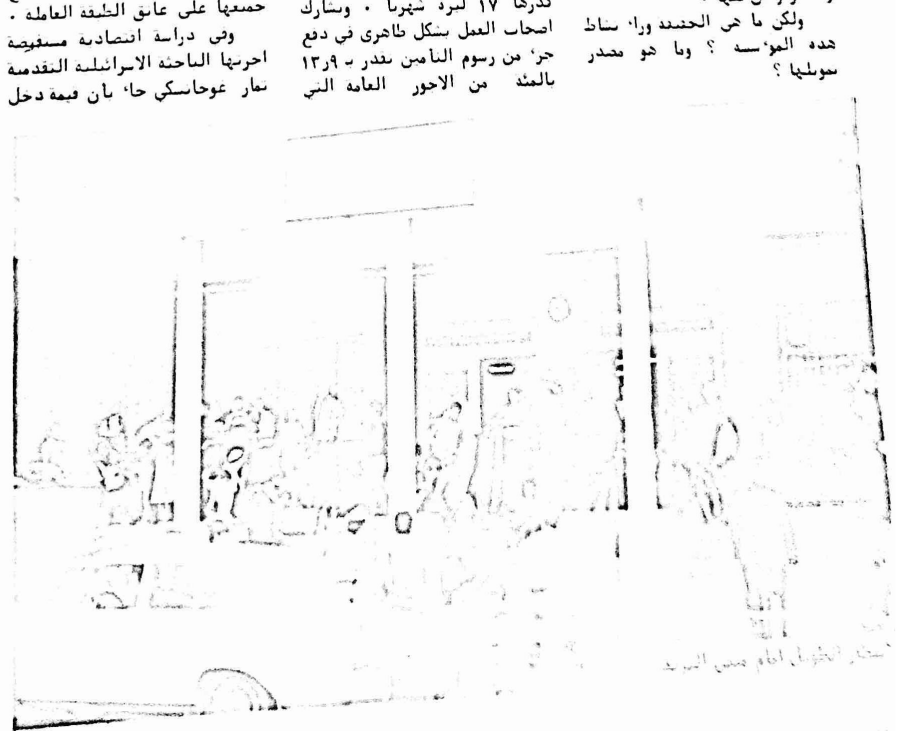 ولكن ما هي الحقيقة وراء نشاط
هذه المؤسسة ؟ وما هو مصدر
تمويلها ؟
قدرها ١٧ ليرة شهريا . ويشارك
اصحاب العمل بشكل ظاهري في دفع
جزء من رسوم التأمين تقدر بـ ١٣٫٩
بالمئة من الاجور العامة التي
جميعها على عاتق الطبقة العاملة .
وفي دراسة اقتصادية مستفيضة
اجرتها الباحثة الاسرائيلية التقدمية
تمار غوجانسكي جاء بأن قيمة دخل